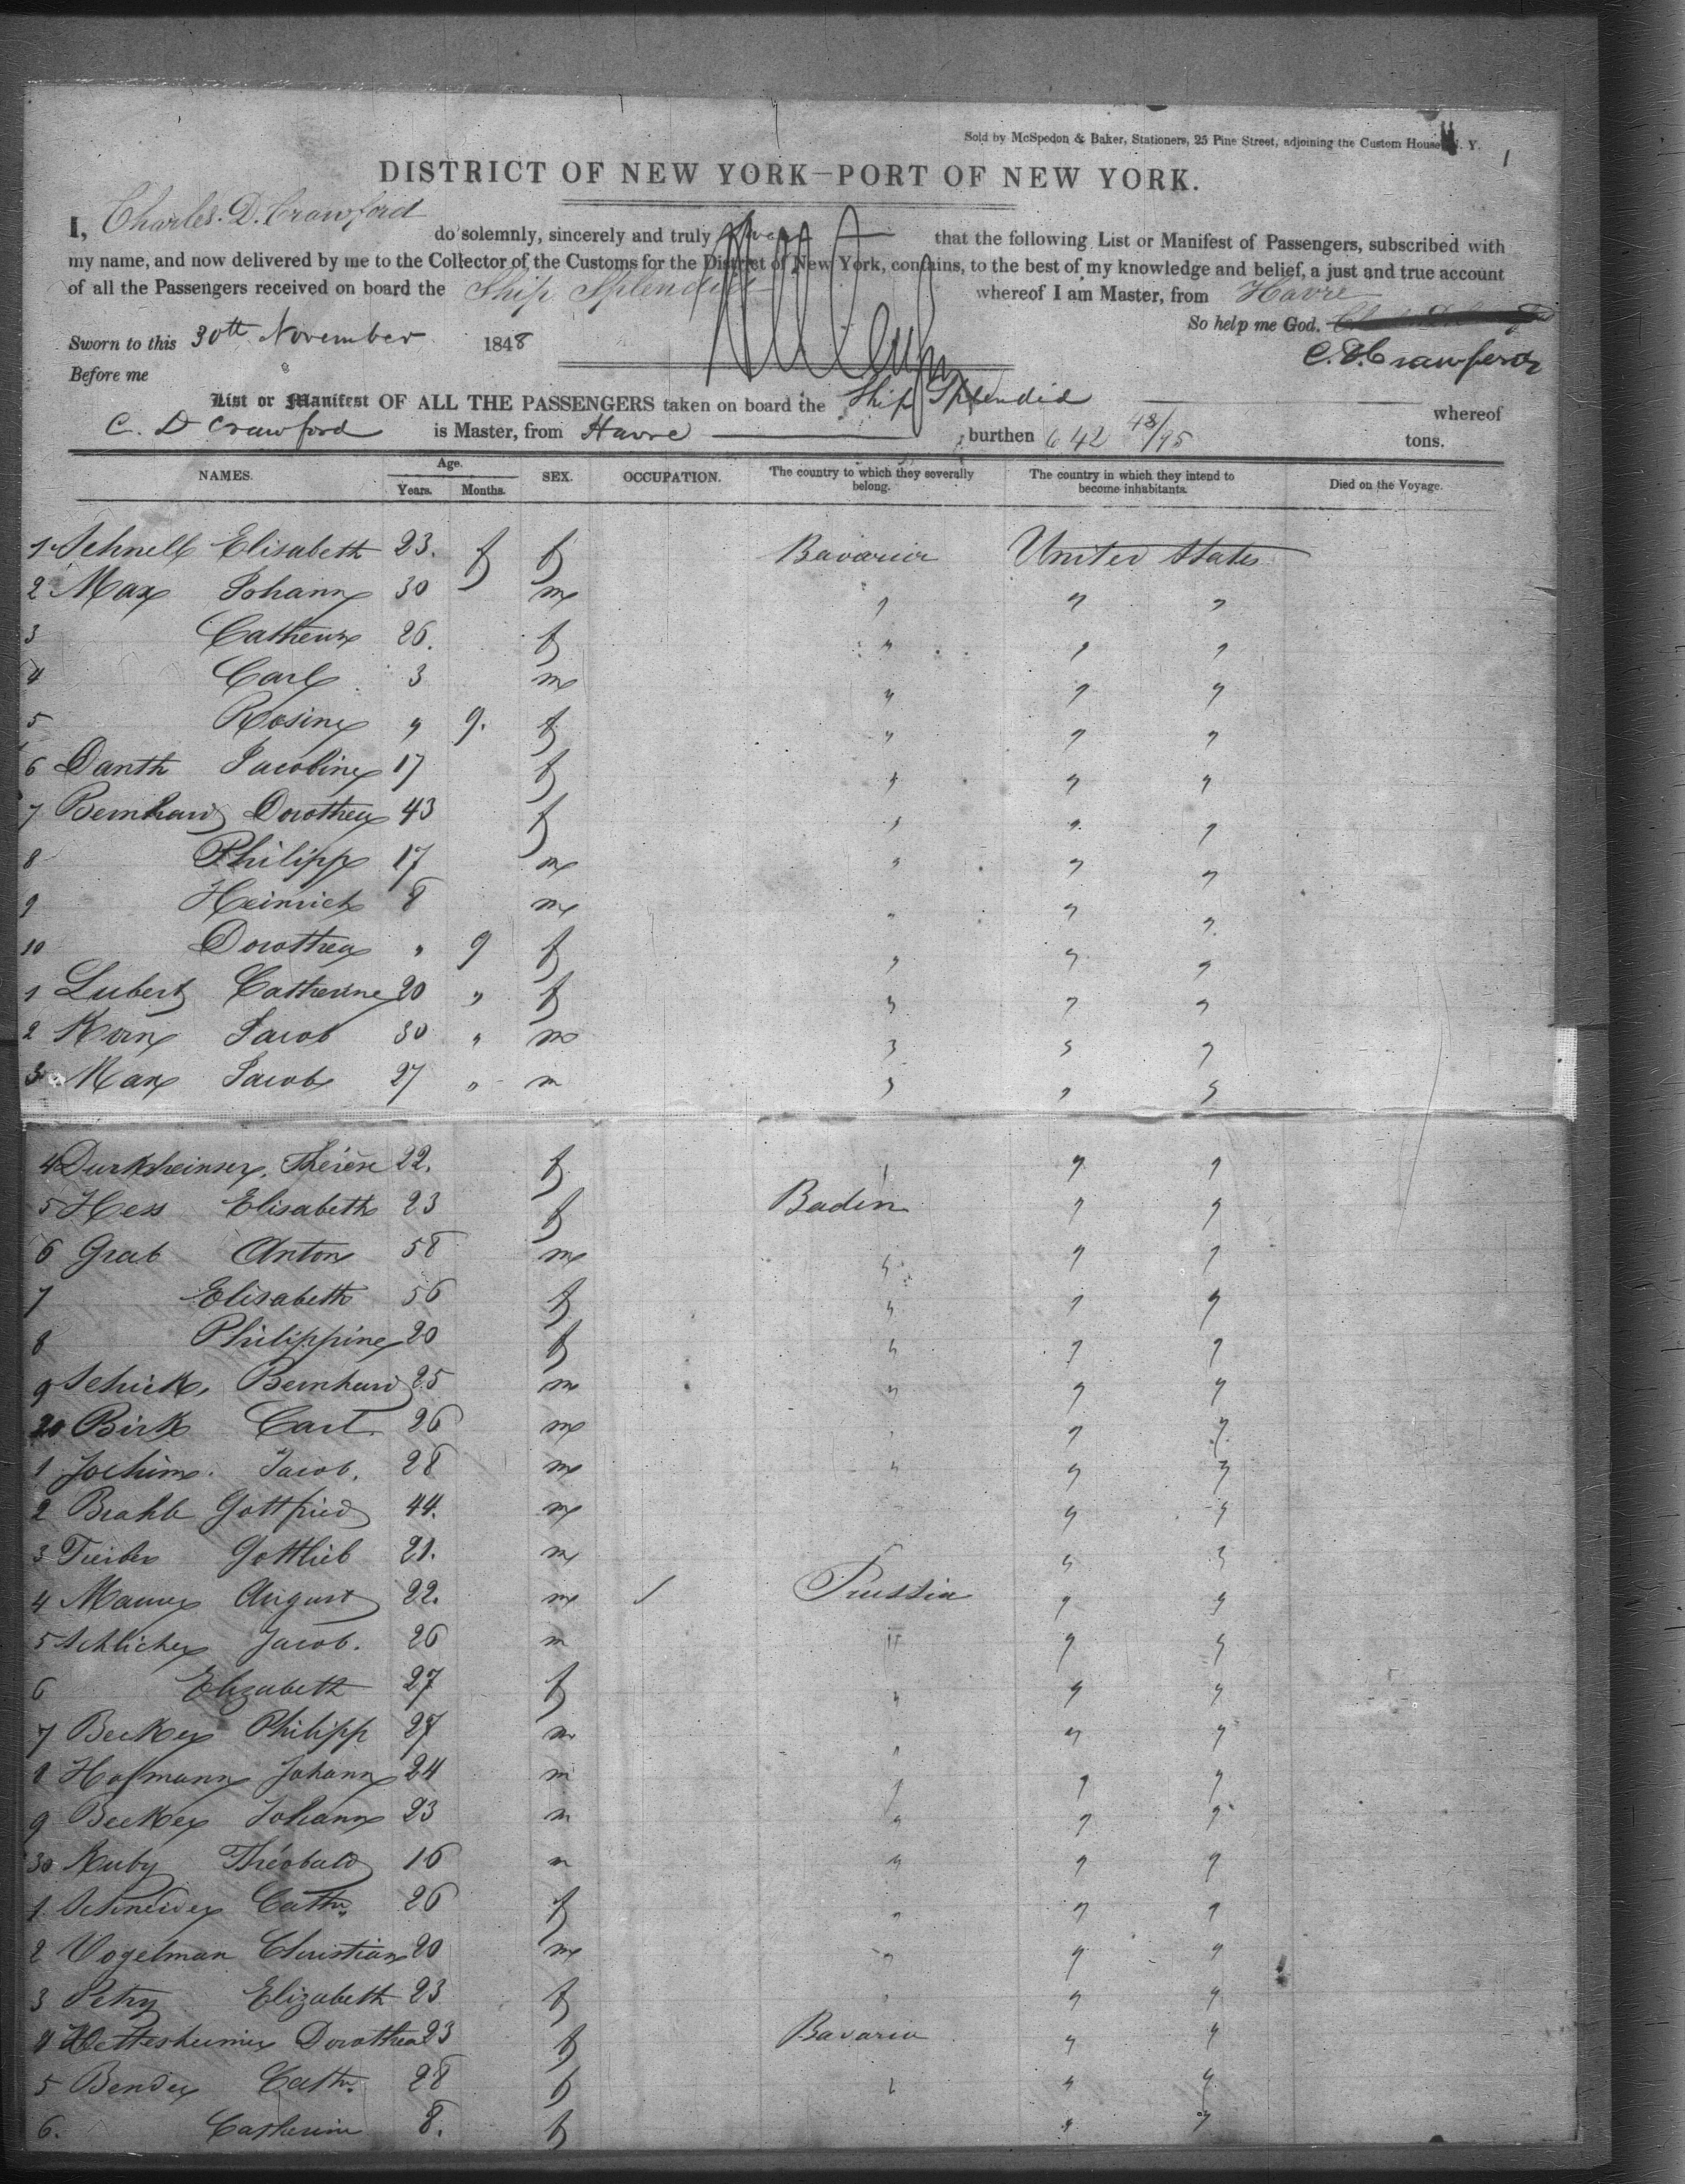 Sold by McSpedon & Baker, Stationers, 25 Pine Street, adjoining the Custom House N. Y. 1
DISTRICT OF NEW YORK—PORT OF NEW YORK.
I, Charles. D. Crawford do solemnly, sincerely and truly swear that the following List or Manifest of Passengers, subscribed with
my name, and now delivered by me to the Collector of the Customs for the District of New York, contains, to the best of my knowledge and belief, a just and true account
of all the Passengers received on board the Ship Splendid whereof I am Master, from Havre
Sworn to this 30th November 1848 So help me God.
Before me C. D. Crawford
List or Manifest OF ALL THE PASSENGERS taken on board the Ship Splendid whereof
C. D Crawford is Master, from Havre burthen 642 48/95 tons.
NAMES. Age. Years. Months. SEX. OCCUPATION. The country to which they severally belong. The country in which they intend to become inhabitants. Died on the Voyage.
1 Schnell Elisabeth 23. f Bavaria United States
2 Max Johann 30 m " " "
3 Catherine 26. f " " "
4 Carl 3 m " " "
5 Rosine " 9. f " " "
6 Danth Jacobine 17 f " " "
7 Bernhard Dorothea 43 f " " "
8 Philipp 17 m " " "
9 Heinrich 8 m " " "
10 Dorothea " 9 f " " "
1 Lubert Catherine 20 " f " " "
2 Korn Jacob 30 " m " " "
3 Max Jacob 27 " m " " "
4 Durkheimer, Thérèse 22. f " " "
5 Hess Elisabeth 23 f Baden " "
6 Grab Anton 58 m " " "
7 Elisabeth 56 f " " "
8 Philippine 20 f " " "
9 Schick, Bernhard 25 m " " "
20 Birk Carl. 26 m " " "
1 Jochim. Jacob. 28 m " " "
2 Gottfried 44. m " " "
3 Gottlieb 21. m " "
4 August 22. m Prussia " "
5 Schlicher Jacob. 26 m " " "
6 Elizabeth 27 f " " "
7 Becker Philipp 27 m " " "
8 Hofmann Johann 24 m " " "
9 Becker Johann 23 m " " "
30 Kuby Théobald 16 m " " "
1 Schneider Cathe. 26 f " " "
2 Vogelman Christian 20 m " " "
3 Petry Elizabeth 23 f " " "
4 Hettesheimer Dorothea 23 f Bavaria " "
5 Bender Cathe. 28 f " " "
6. Catherine 8. f " "